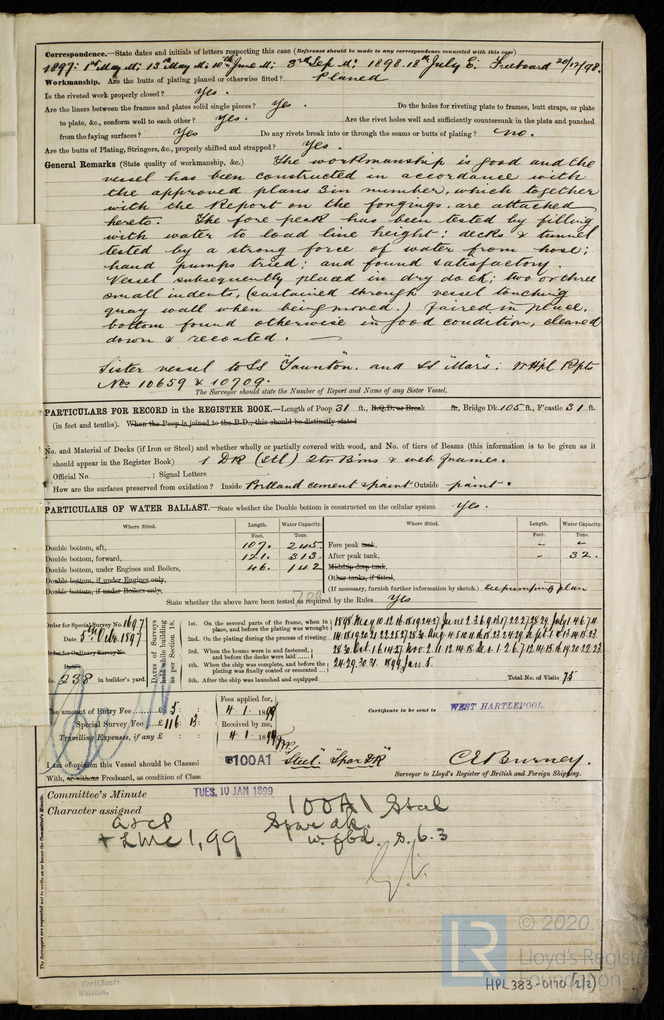 Correspondence.—State dates and initials of letters respecting this case (Reference should be made to any correspondence connected with this case)
1897: 1st May M: 13th May M: 10th June M: 3rd Sep M: 1898. 18th July E. Freeboard 20/12/98.
Workmanship. Are the butts of plating planed or otherwise fitted? Planed
Is the riveted work properly closed? Yes.
Are the liners between the frames and plates solid single pieces? Yes. Do the holes for riveting plate to frames, butt straps, or plate
to plate, &c., conform well to each other? Yes. Are the rivet holes well and sufficiently countersunk in the plate and punched
from the faying surfaces? Yes Do any rivets break into or through the seams or butts of plating? no.
Are the butts of Plating, Stringers, &c., properly shifted and strapped? Yes.
General Remarks (State quality of workmanship, &c.) The workmanship is good and the
vessel has been constructed in accordance with
the approved plans 3 in number, which together
with the Report on the forgings, are attached
hereto. The fore peak has been tested by filling
with water to load line height: decks & tunnel
tested by a strong force of water from hose;
hand pumps tried; and found satisfactory.
Vessel subsequently placed in dry dock; two or three
small indents, (sustained through vessel touching
quay wall when being moved.) faired in place.
bottom found otherwise in good condition, cleaned
down & recoated.
Sister vessel to SS "Taunton" and SS "Mars"; W Hpl Rpts
Nos 10659 & 10709.
The Surveyor should state the Number of Report and Name of any Sister Vessel.
PARTICULARS FOR RECORD in the REGISTER BOOK.—Length of Poop 31 ft., R.Q.D. or Break ft., Bridge Dk. 105 ft., F'castle 31 ft.
(in feet and tenths). When the Poop is joined to the B.D., this should be distinctly stated
No. and Material of Decks (if Iron or Steel) and whether wholly or partially covered with wood, and No. of tiers of Beams (this information is to be given as it
should appear in the Register Book) 1 DK (Stl) 2tr Bms & web frames.
Official No. ; Signal Letters
How are the surfaces preserved from oxidation? Inside Portland cement & paint Outside paint.
PARTICULARS OF WATER BALLAST.—State whether the Double bottom is constructed on the cellular system Yes.
Where fitted. Length. Water Capacity. Where fitted. Length. Water Capacity.
Feet. Tons. Feet. Tons.
Double bottom, aft, 107. 245 Fore peak tank, " "
Double bottom, forward, 121. 313 After peak tank, " 32.
Double bottom, under Engines and Boilers, 46. 142 Midship deep tank,
Double bottom, if under Engines only, Other tanks, if fitted,
Double bottom, if under Boilers only, 700 (If necessary, furnish further information by sketch.) see pumping plan
State whether the above have been tested as required by the Rules Yes
Order for Special Survey No. 1697
Date 5th Oct. 1897
Order for Ordinary Survey No.
Date
No. 238 in builder's yard.
Dates of Surveys held while building as per Section 18.
1st. On the several parts of the frame, when in place, and before the plating was wrought
2nd. On the plating during the process of riveting
3rd. When the beams were in and fastened, and before the decks were laid
4th. When the ship was complete, and before the plating was finally coated or cemented
5th. After the ship was launched and equipped
Total No. of Visits 75
The amount of Entry Fee £ 5 : :
Special Survey Fee £ 116 :
Travelling Expenses, if any £ :
Fees applied for,
4. 1. 1899
Received by me,
4. 1. 1899
Certificate to be sent to WEST HARTLEPOOL.
I am of opinion this Vessel should be Classed 100A1 Steel "Spar DK" C E Burney.
With, or without Freeboard, as condition of Class Surveyor to Lloyd's Register of British and Foreign Shipping.
Committee's Minute TUES, 10 JAN 1899
Character assigned 100A1 Steel
a & cp Spar dk.
+ LMC 1,99 w. fbd. s. 6.3
The Surveyors are requested not to write on or below the Committee's Minute.
© 2020
LR Lloyd's Register
Foundation
HPL383-0170 (2/2)